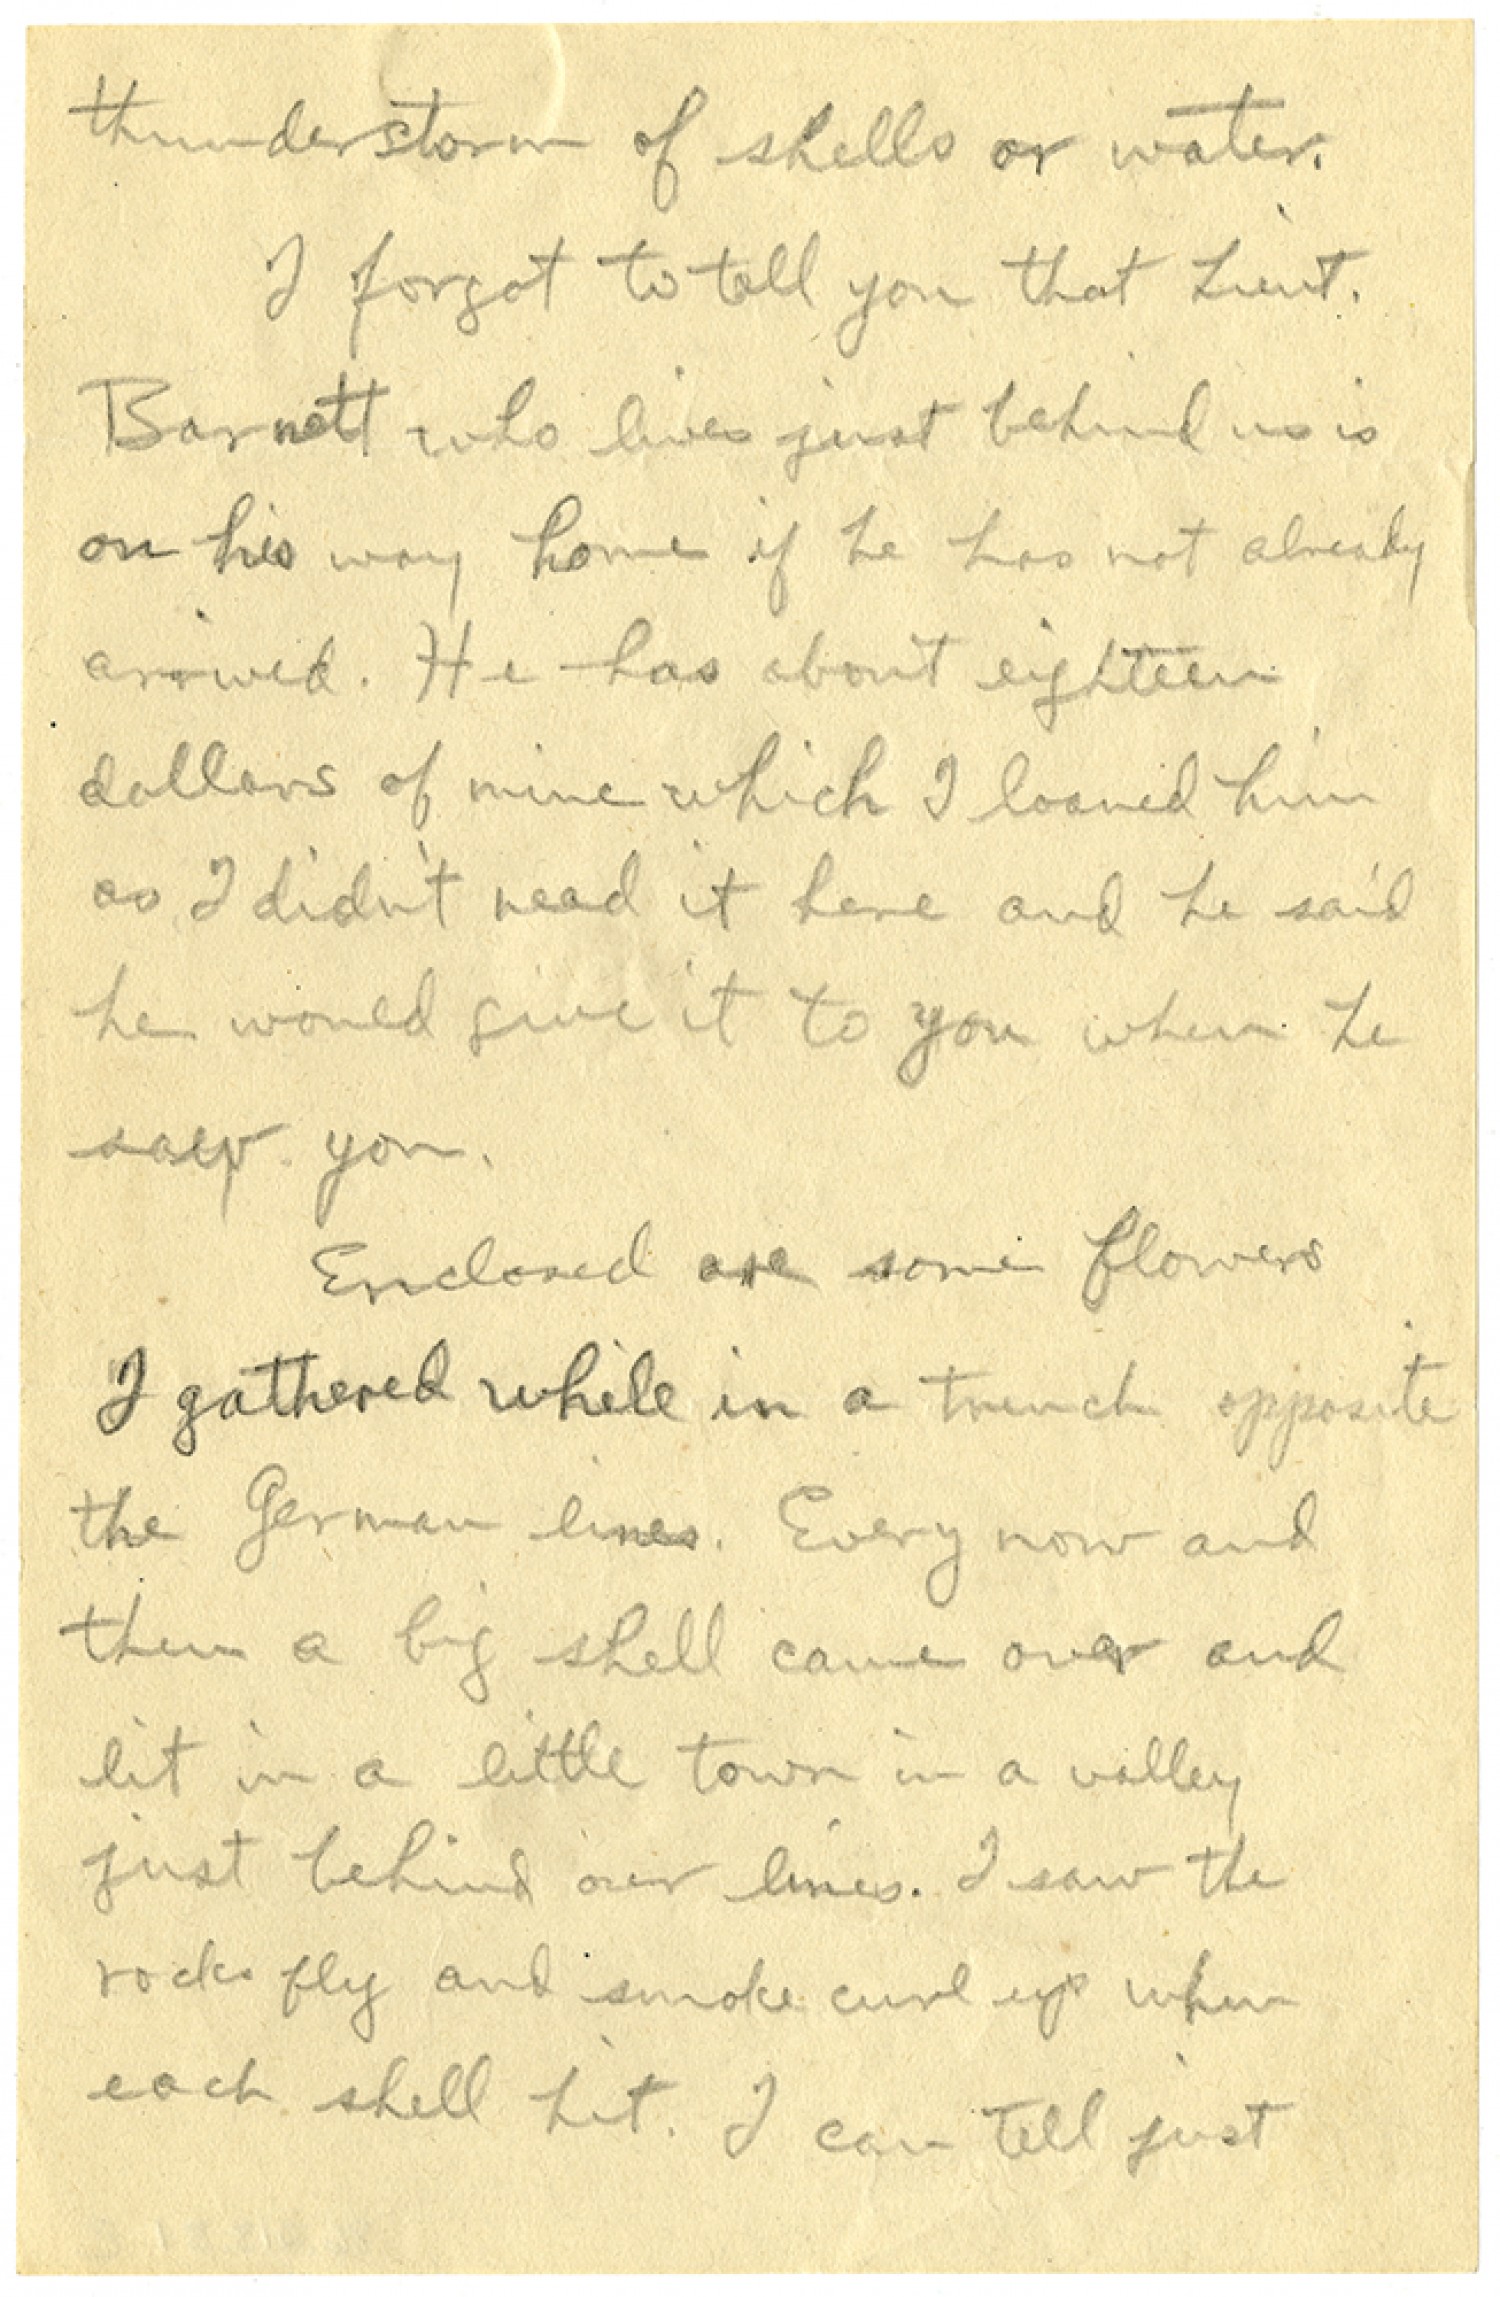 thunderstorm of shells or water.
I forgot to tell you that Lieut.
Barnett who lives just behind us is
on his way home if he has not already
arrived. He has about eighteen
dollars of mine which I loaned him
as I didn't need it here and he said
he would give it to you when he
saw you.
Enclosed are some flowers
I gathered while in a trench opposite
the German lines. Every now and
then a big shell came over and
lit in a little town in a valley
just behind our lines. I saw the
rocks fly and smoke curl up when
each shell hit. I can tell just